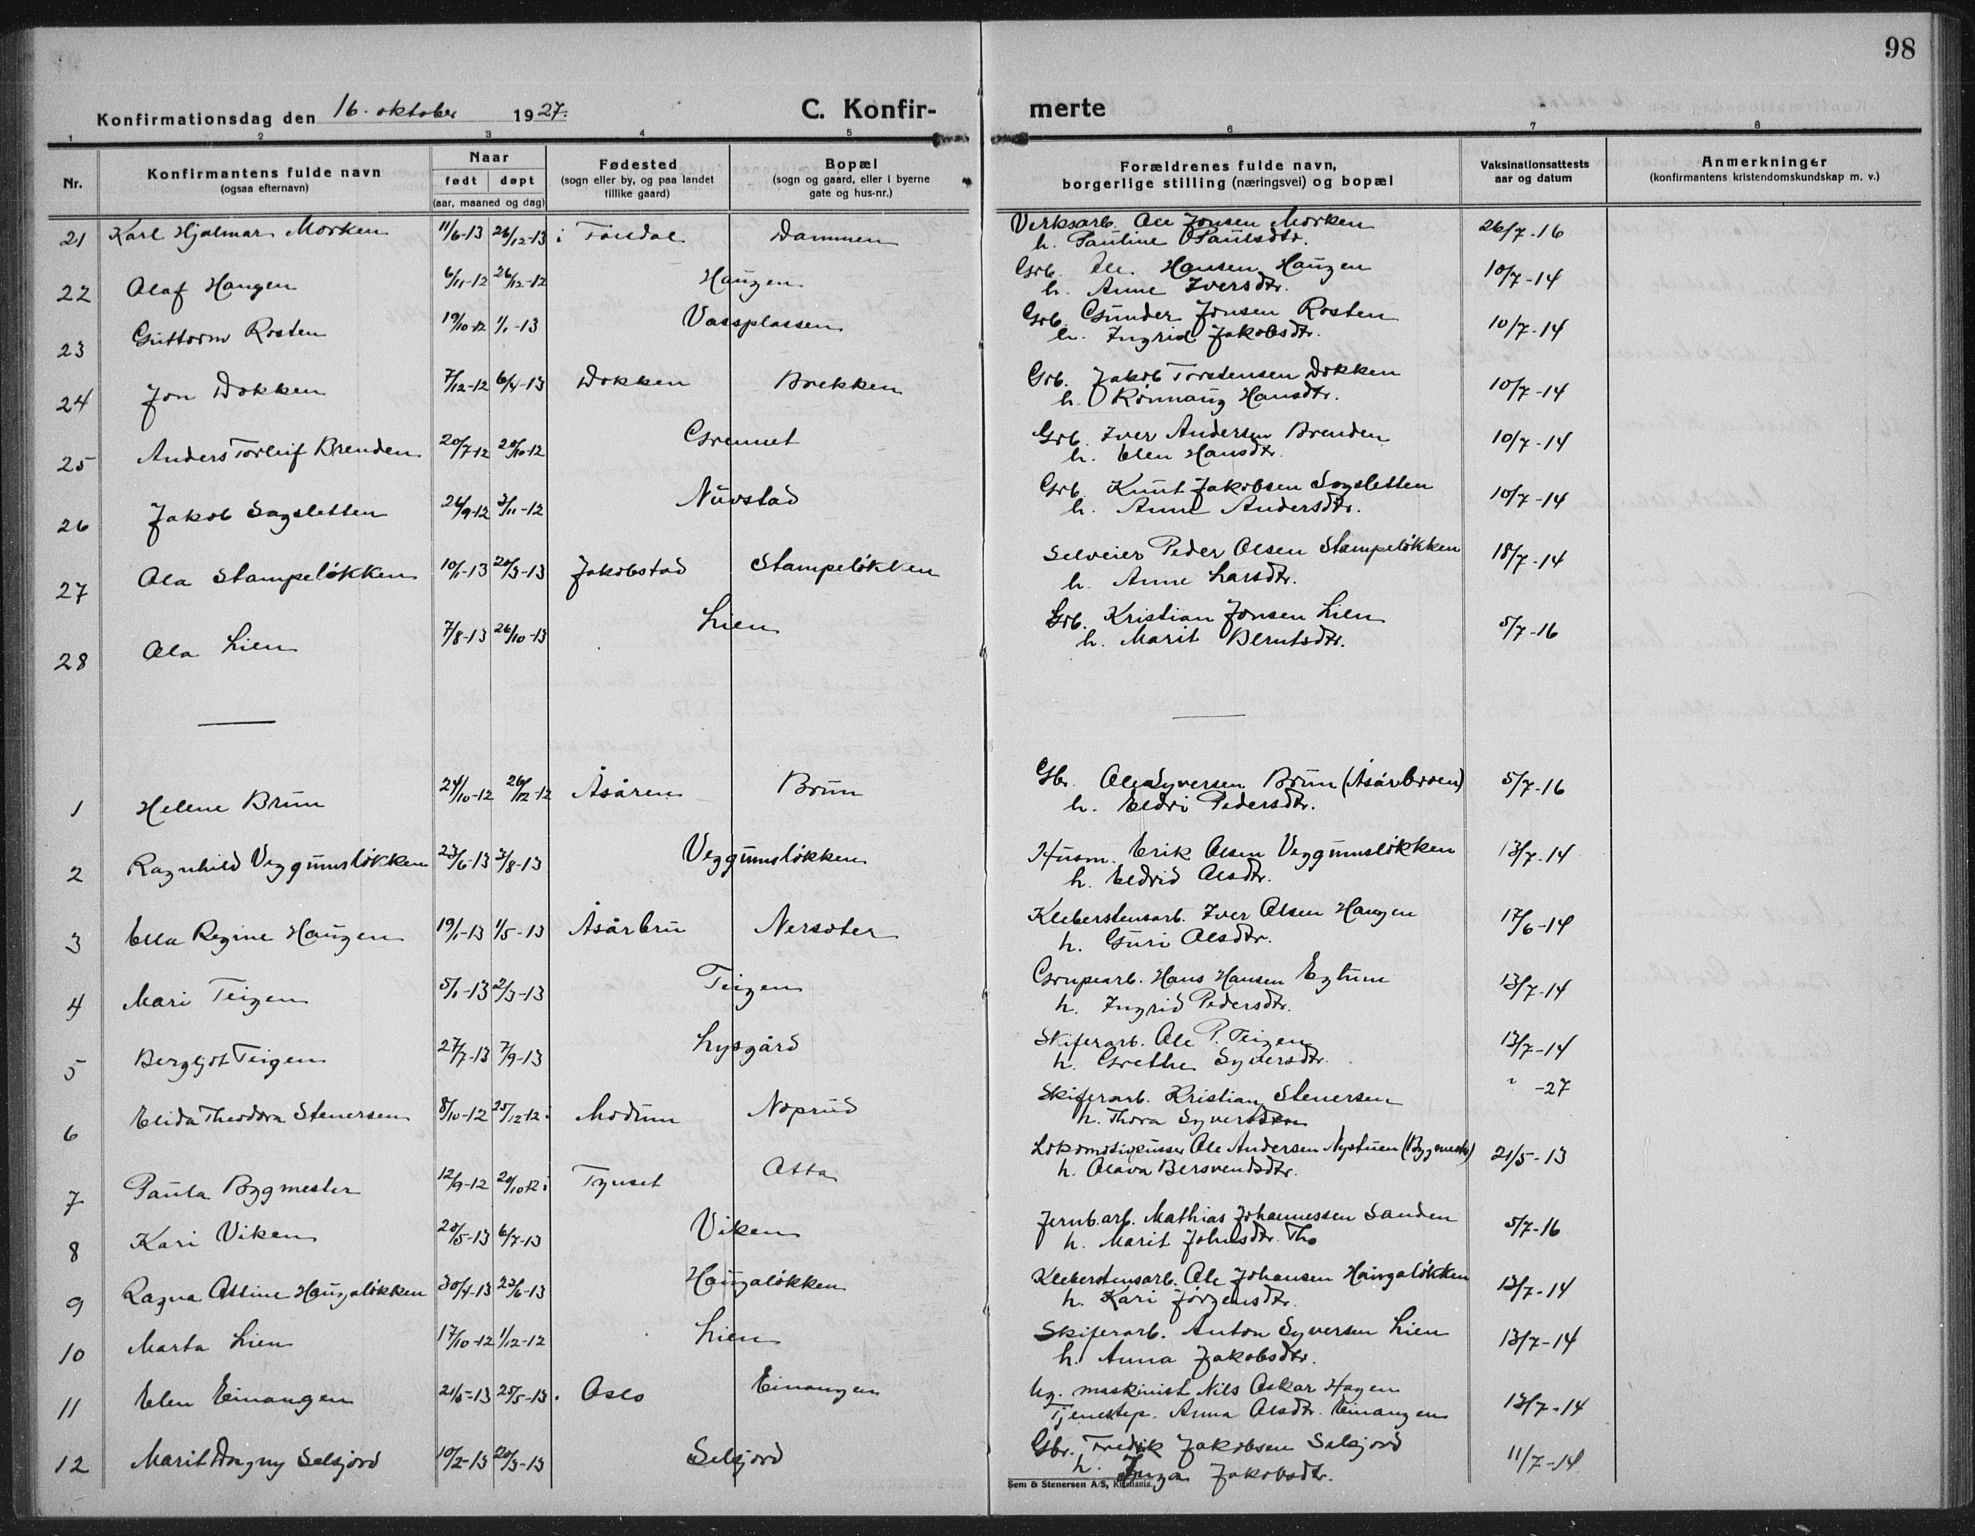 98
Konfirmationsdag den 16. oktober 1927.
C. Konfir-merte
1 2 3 4 5 6 7 8
Nr.
Konfirmantens fulde navn
(ogsaa efternavn)
Naar
født døpt
(aar, maaned og dag)
Fødested
(sogn eller by, og paa landet
tillike gaard)
Bopæl
(sogn og gaard, eller i byerne
gate og hus-nr.)
Forældrenes fulde navn,
borgerlige stilling (næringsvei) og bopæl
Vaksinationsattests
aar og datum
Anmerkninger
(konfirmantens kristendomskundskap m. v.)
21 Karl Hjalmar Morken 11/6-13 26/12-13 i Folldal Dammen Verksarb. Ole Jonsen Morken 26/7-16
h. Pauline Paulsdtr.
22 Olaf Haugen 6/11-12 26/12-12 Haugen Grb. Ole Hansen Haugen 10/7-14
h. Anne Iversdtr.
23 Guttorm Rosten 19/10-12 1/1-13 Vassplassen Grb. Gunder Jonsen Rosten 10/7-14
h. Ingrid Jakobsdtr.
24 Jon Dokken 7/12-12 6/4-13 Dokken Brekken Grb. Jakob Torstensen Dokken 10/7-14
h. Rønnaug Hansdtr.
25 Anders Torleif Brenden 20/7-12 20/10-12 Grennet Grb. Iver Andersen Brenden 10/7-14
h. Elen Hansdtr.
26 Jakob Sagsletten 26/9-12 3/11-12 Nustad Grb. Knut Jakobsen Sagsletten 10/7-14
h. Anne Andersdtr.
27 Ola Stampeløkken 10/1-13 20/3-13 Jakobstad Stampeløkken Selveier Peder Olsen Stampeløkken 18/7-14
h. Anne Larsdtr.
28 Ola Lien 7/8-13 26/10-13 Lien Grb. Kristian Jonsen Lien 5/7-16
h. Marit Berntsdtr.
1 Helene Brun 24/10-12 26/12-12 Åsåren Brun Gbr. Ole Syversen Brun (Åsårbroen) 5/7-16
h. Eldri Pedersdtr.
2 Ragnhild Veggumsløkken 23/6-13 3/8-13 Veggumsløkken Husm. Erik Olsen Veggumsløkken 13/7-14
h. Eldrid Olsdtr.
3 Ella Regine Haugen 19/1-13 1/5-13 Åsårbru Nersæter Kleberstensarb. Iver Olsen Haugen 17/6-14
h. Guri Olsdtr.
4 Mari Teigen 5/1-13 2/3-13 Teigen Grupearb. Hans Hansen Eztum 13/7-14
h. Ingrid Pedersdtr.
5 Bergljot Teigen 27/7-13 7/9-13 Lysgård Skiferarb. Ole P. Teigen 13/7-14
h. Grethe Syversdtr.
6 Elida Theodora Stenersen 8/10-12 25/12-12 i Modum Noprud Skiferarb. Kristian Stenersen -27
h. Thora Syversdtr.
7 Paula Bygmester 12/9-12 20/10-12 i Tynset Otta Lokomotivpusser Ole Andersen Nystuen (Bygmester) 21/5-13
h. Olava Bersvendsdtr.
8 Kari Viken 20/5-13 6/7-13 Viken Jernb.arb. Mathias Johannessen Sanden 5/7-16
h. Marit Johnsdtr. Tho
9 Ragna Ottine Haugaløkken 30/4-13 22/6-13 Haugaløkken Kleberstensarb. Ole Johansen Haugaløkken 13/7-14
h. Kari Jørgensdtr.
10 Marta Lien 17/10-12 1/12-12 Lien Skiferarb. Anton Syversen Lien 13/7-14
h. Anna Jakobsdtr.
11 Elen Einangen 21/5-13 25/5-13 i Oslo Einangen Ug. maskinist Nils Oskar Hagen 13/7-14
Tjenestep. Anna Olsdtr. Einangen
12 Marit Dagny Selsjord 10/2-13 20/3-13 Selsjord Gbr. Fredrik Jakobsen Selsjord 11/7-14
h. Inga Jakobsdtr.
Sem & Stenersen A/S, Kristiania.